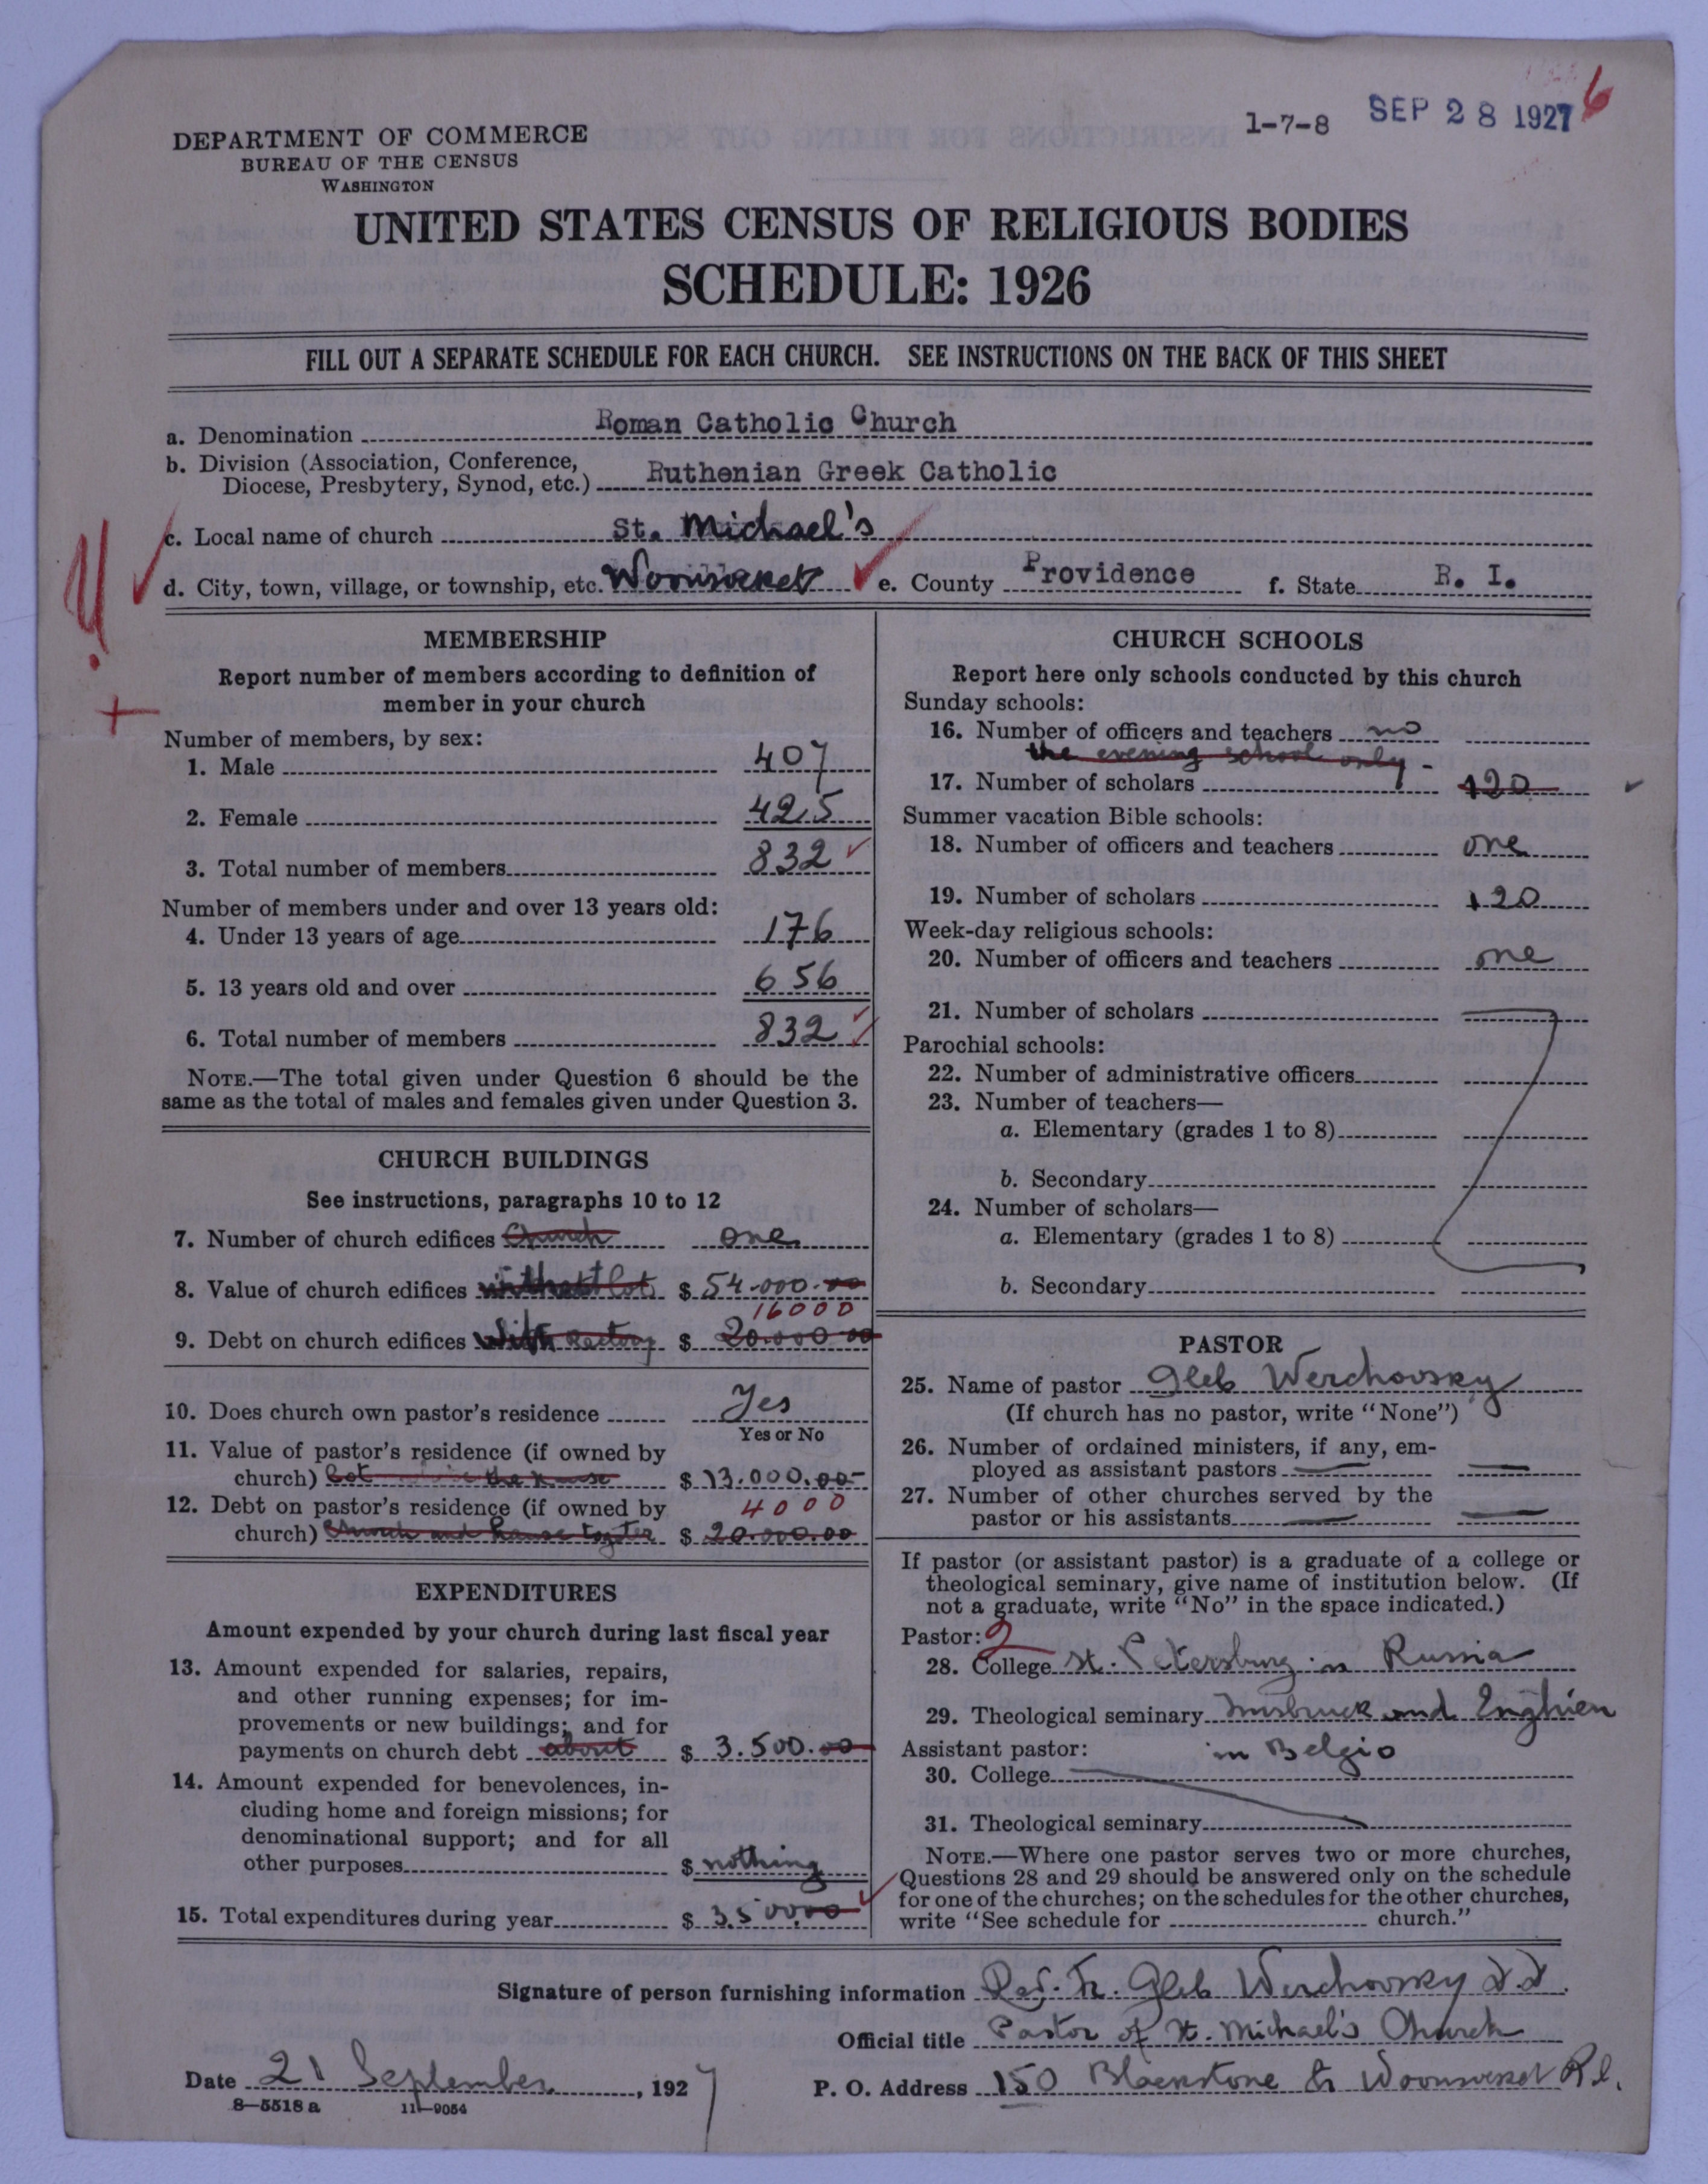 1-7-8 SEP 28 1927 6
DEPARTMENT OF COMMERCE
BUREAU OF THE CENSUS
WASHINGTON
UNITED STATES CENSUS OF RELIGIOUS BODIES
SCHEDULE: 1926
FILL OUT A SEPARATE SCHEDULE FOR EACH CHURCH. SEE INSTRUCTIONS ON THE BACK OF THIS SHEET
a. Denomination Roman Catholic Church
b. Division (Association, Conference,
Diocese, Presbytery, Synod, etc.) Ruthenian Greek Catholic
c. Local name of church St. Michael's
d. City, town, village, or township, etc. Woonsocket e. County Providence f. State R. I.
MEMBERSHIP
Report number of members according to definition of
member in your church
Number of members, by sex:
1. Male 407
2. Female 425
3. Total number of members 832
Number of members under and over 13 years old:
4. Under 13 years of age 176
5. 13 years old and over 656
6. Total number of members 832
NOTE.—The total given under Question 6 should be the
same as the total of males and females given under Question 3.
CHURCH BUILDINGS
See instructions, paragraphs 10 to 12
7. Number of church edifices Church one
8. Value of church edifices without lot $ 54.000.00
16000
9. Debt on church edifices with Rectory $ 20.000 00
10. Does church own pastor's residence Yes
Yes or No
11. Value of pastor's residence (if owned by
church) Lot the house $ 13.000.00-
12. Debt on pastor's residence (if owned by 4000
church) Church and house togeter $ 20.000.00
EXPENDITURES
Amount expended by your church during last fiscal year
13. Amount expended for salaries, repairs,
and other running expenses; for im-
provements or new buildings; and for
payments on church debt about $ 3.500.00
14. Amount expended for benevolences, in-
cluding home and foreign missions; for
denominational support; and for all
other purposes $ nothing
15. Total expenditures during year $ 3.500.00
CHURCH SCHOOLS
Report here only schools conducted by this church
Sunday schools:
16. Number of officers and teachers no
the evening school only -
17. Number of scholars 120
Summer vacation Bible schools:
18. Number of officers and teachers one
19. Number of scholars 120
Week-day religious schools:
20. Number of officers and teachers one
21. Number of scholars
Parochial schools:
22. Number of administrative officers
23. Number of teachers—
a. Elementary (grades 1 to 8)
b. Secondary
24. Number of scholars—
a. Elementary (grades 1 to 8)
b. Secondary
PASTOR
25. Name of pastor Gleb Werchovsky
(If church has no pastor, write "None")
26. Number of ordained ministers, if any, em-
ployed as assistant pastors
27. Number of other churches served by the
pastor or his assistants
If pastor (or assistant pastor) is a graduate of a college or
theological seminary, give name of institution below. (If
not a graduate, write "No" in the space indicated.)
Pastor: 2
28. College St. Petersburg in Russia
29. Theological seminary Innsbruck and Enghien
Assistant pastor: in Belgio
30. College
31. Theological seminary
NOTE.—Where one pastor serves two or more churches,
Questions 28 and 29 should be answered only on the schedule
for one of the churches; on the schedules for the other churches,
write "See schedule for church."
Signature of person furnishing information Rev. Fr. Gleb Werchovsky D.D.
Official title Pastor of St. Michael's Church
Date 21 September, 1927 P. O. Address 150 Blackstone St Woonsocket R.I.
8—5518 a 11—9054